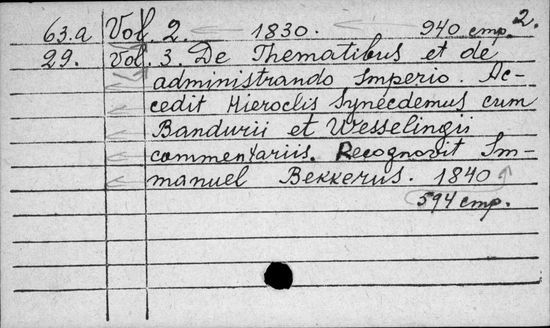 2.
63.a Vol. 2. 1830. 940 стр.
29. Vol. 3. De Thematibus et de
administrando Imperio. Ac-
cedit Hieroclis Synecdemus cum
Bandurii et Wesselingii
commentariis. Recognovit Im-
manuel Bekkerus. 1840
594 стр.